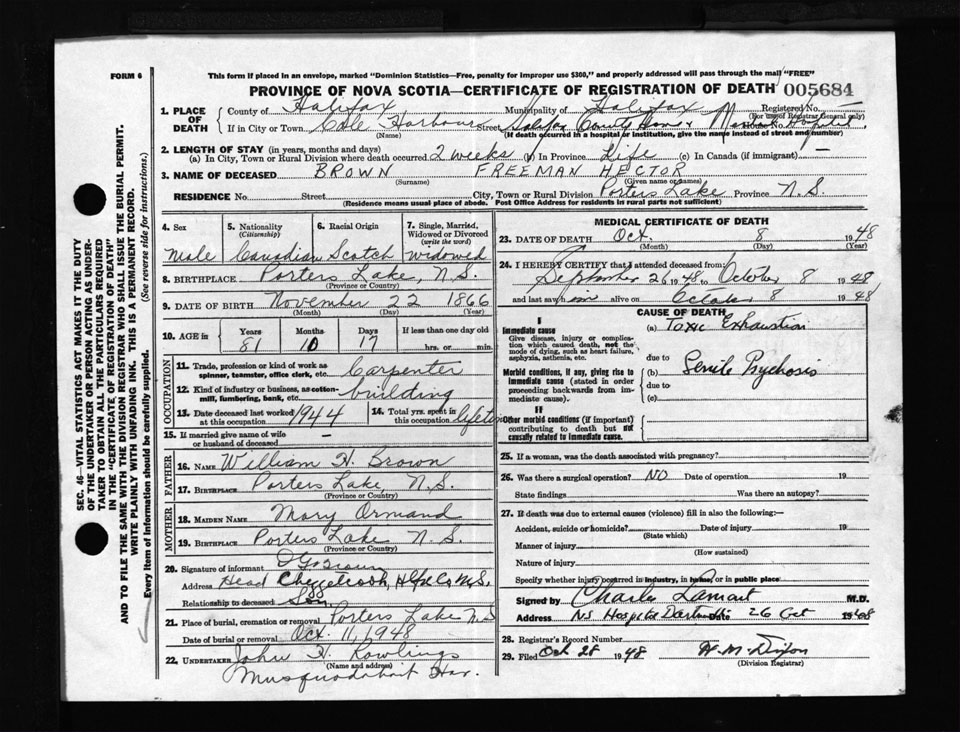 FORM 6
This form if placed in an envelope, marked "Dominion Statistics—Free, penalty for improper use $300," and properly addressed will pass through the mail "FREE"
PROVINCE OF NOVA SCOTIA—CERTIFICATE OF REGISTRATION OF DEATH 005684
1. PLACE OF DEATH County of Halifax Municipality of Halifax Registered No. (For use of Registrar General only)
If in City or Town Cole Harbour Street Halifax County Home & Mental Hospital House No.
(Name) (If death occurred in a hospital or institution, give the name instead of street and number)
2. LENGTH OF STAY (in years, months and days)
(a) In City, Town or Rural Division where death occurred 2 weeks (b) In Province Life (c) In Canada (if immigrant) —
3. NAME OF DECEASED BROWN FREEMAN HECTOR
(Surname) (Given name or names)
RESIDENCE No. Street City, Town or Rural Division Porters Lake Province N.S.
(Residence means usual place of abode. Post Office Address for residents in rural parts not sufficient)
4. Sex 5. Nationality (Citizenship) 6. Racial Origin 7. Single, Married, Widowed or Divorced (write the word)
Male Canadian Scotch Widowed
8. BIRTHPLACE Porters Lake, N.S.
(Province or Country)
9. DATE OF BIRTH November 22 1866
(Month) (Day) (Year)
10. AGE in Years Months Days If less than one day old
81 10 17 hrs. or min.
OCCUPATION
11. Trade, profession or kind of work as spinner, teamster, office clerk, etc. Carpenter
12. Kind of industry or business, as cotton-mill, lumbering, bank, etc. building
13. Date deceased last worked at this occupation 1944 14. Total yrs. spent in this occupation lifetime
15. If married give name of wife or husband of deceased —
FATHER
16. NAME William H. Brown
17. BIRTHPLACE Porters Lake, N.S.
(Province or Country)
MOTHER
18. MAIDEN NAME Mary Ormand
19. BIRTHPLACE Porters Lake N.S.
(Province or Country)
20. Signature of informant Brown
Address Head Chezzetcook, Hfx Co N.S.
Relationship to deceased Son
21. Place of burial, cremation or removal Porters Lake N.S
Date of burial or removal Oct. 11, 1948
22. UNDERTAKER John H. Rowlings
(Name and address)
Musquodoboit Har.
MEDICAL CERTIFICATE OF DEATH
23. DATE OF DEATH Oct. 8 1948
(Month) (Day) (Year)
24. I HEREBY CERTIFY that I attended deceased from:
September 26 1948 to October 8 1948
and last saw him alive on October 8 1948
CAUSE OF DEATH
I
Immediate cause (a) Toxic Exhaustion
Give disease, injury or complication which caused death, not the mode of dying, such as heart failure, asphyxia, asthenia, etc.
due to
Morbid conditions, if any, giving rise to immediate cause (stated in order proceeding backwards from immediate cause).
(b) Senile Psychosis
due to
(c)
II
Other morbid conditions (if important) contributing to death but not causally related to immediate cause.
25. If a woman, was the death associated with pregnancy?
26. Was there a surgical operation? NO Date of operation 19
State findings Was there an autopsy?
27. If death was due to external causes (violence) fill in also the following:—
Accident, suicide or homicide? Date of injury 19
(State which)
Manner of injury
(How sustained)
Nature of injury
Specify whether injury occurred in industry, in home, or in public place
Signed by Charles Lamont M.D.
Address NS Hospital Dartmouth Date 26 Oct 1948
28. Registrar's Record Number
29. Filed Oct 28 1948 W. M. Dixon
(Division Registrar)
SEC. 46—VITAL STATISTICS ACT MAKES IT THE DUTY
OF THE UNDERTAKER OR PERSON ACTING AS UNDER-
TAKER TO OBTAIN ALL THE PARTICULARS REQUIRED
IN THE "CERTIFICATE OF REGISTRATION OF DEATH"
AND TO FILE THE SAME WITH THE DIVISION REGISTRAR WHO SHALL ISSUE THE BURIAL PERMIT.
WRITE PLAINLY WITH UNFADING INK. THIS IS A PERMANENT RECORD.
Every item of information should be carefully supplied. (See reverse side for instructions.)